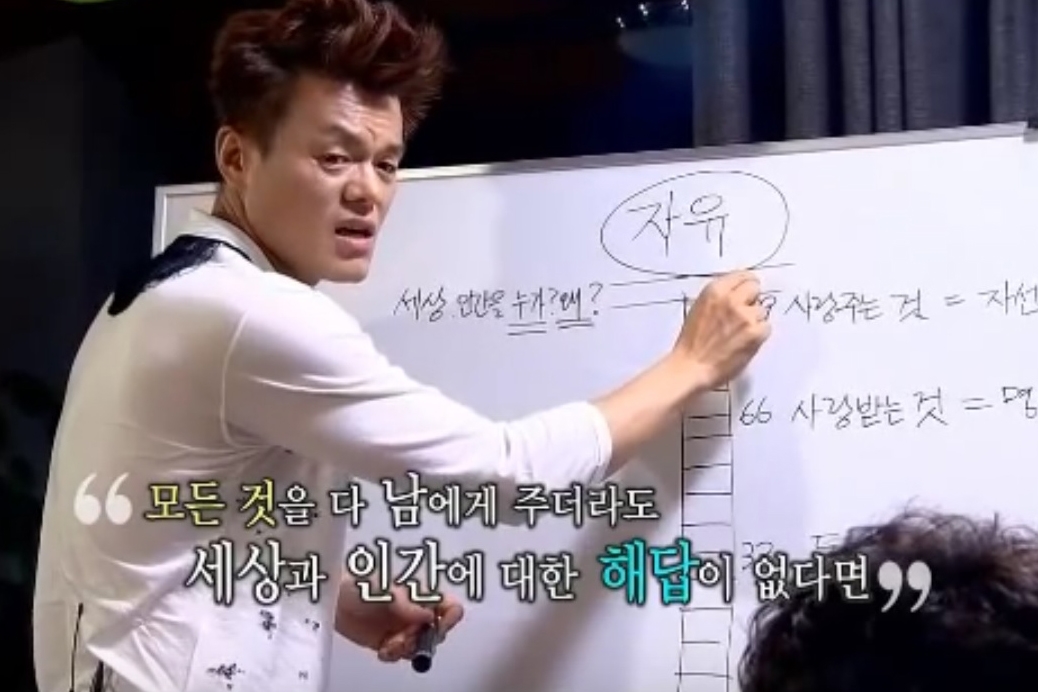 자유
세상 인간을 누가? 왜?
사랑주는 것 = 자선
66 사랑받는 것 = 명
33
“모든 것을 다 남에게 주더라도
세상과 인간에 대한 해답이 없다면”